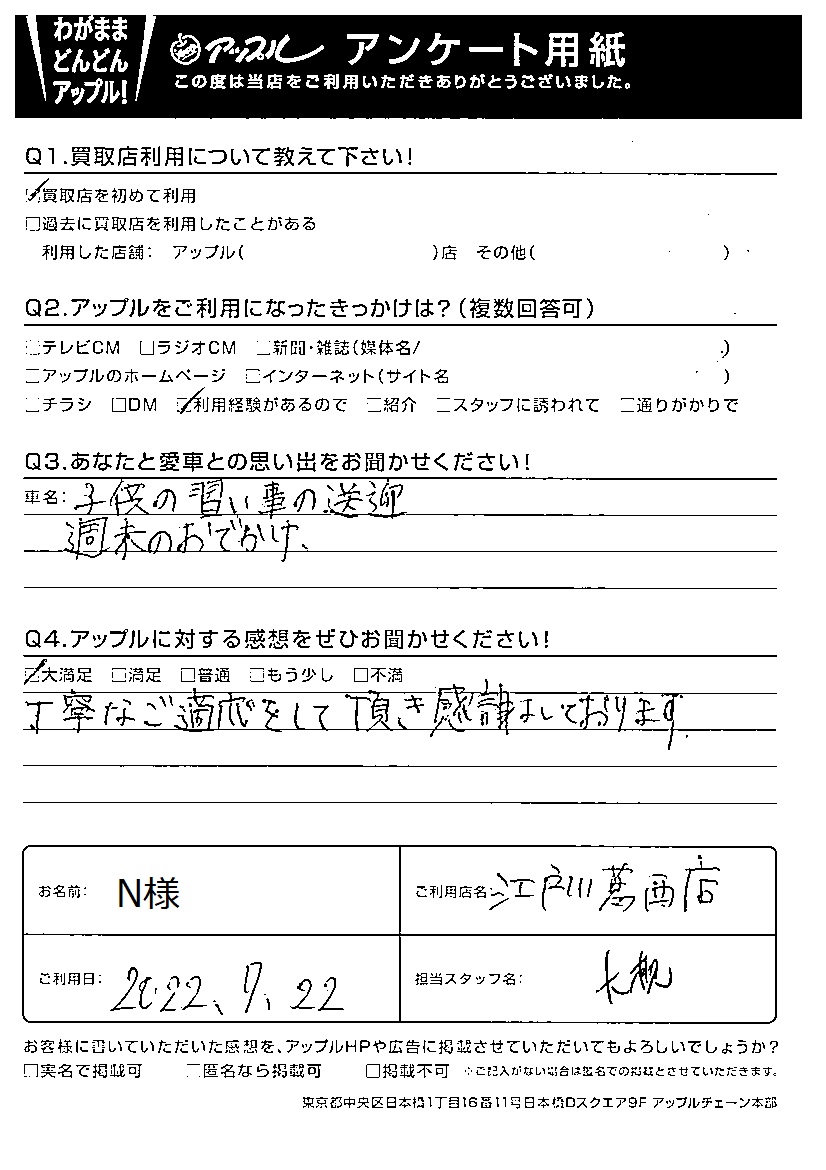 わがまま
どんどん
アップル!
アップル アンケート用紙
この度は当店をご利用いただきありがとうございました。
Q1.買取店利用について教えて下さい!
☑買取店を初めて利用
□過去に買取店を利用したことがある
利用した店舗: アップル( )店 その他( )
Q2.アップルをご利用になったきっかけは?(複数回答可)
□テレビCM □ラジオCM □新聞・雑誌(媒体名/ )
□アップルのホームページ □インターネット(サイト名 )
□チラシ □DM ☑利用経験があるので □紹介 □スタッフに誘われて □通りがかりで
Q3.あなたと愛車との思い出をお聞かせください!
車名: 子供の習い事の送迎
週末のおでかけ、
Q4.アップルに対する感想をぜひお聞かせください!
☑大満足 □満足 □普通 □もう少し □不満
丁寧なご適応をして頂き感謝しております。
お名前: N様
ご利用店名: 江戸川葛西店
ご利用日: 2022、7、22
担当スタッフ名: 大槻
お客様に書いていただいた感想を、アップルHPや広告に掲載させていただいてもよろしいでしょうか?
□実名で掲載可 □匿名なら掲載可 □掲載不可 ※ご記入がない場合は匿名での掲載とさせていただきます。
東京都中央区日本橋1丁目16番11号日本橋Dスクエア9F アップルチェーン本部